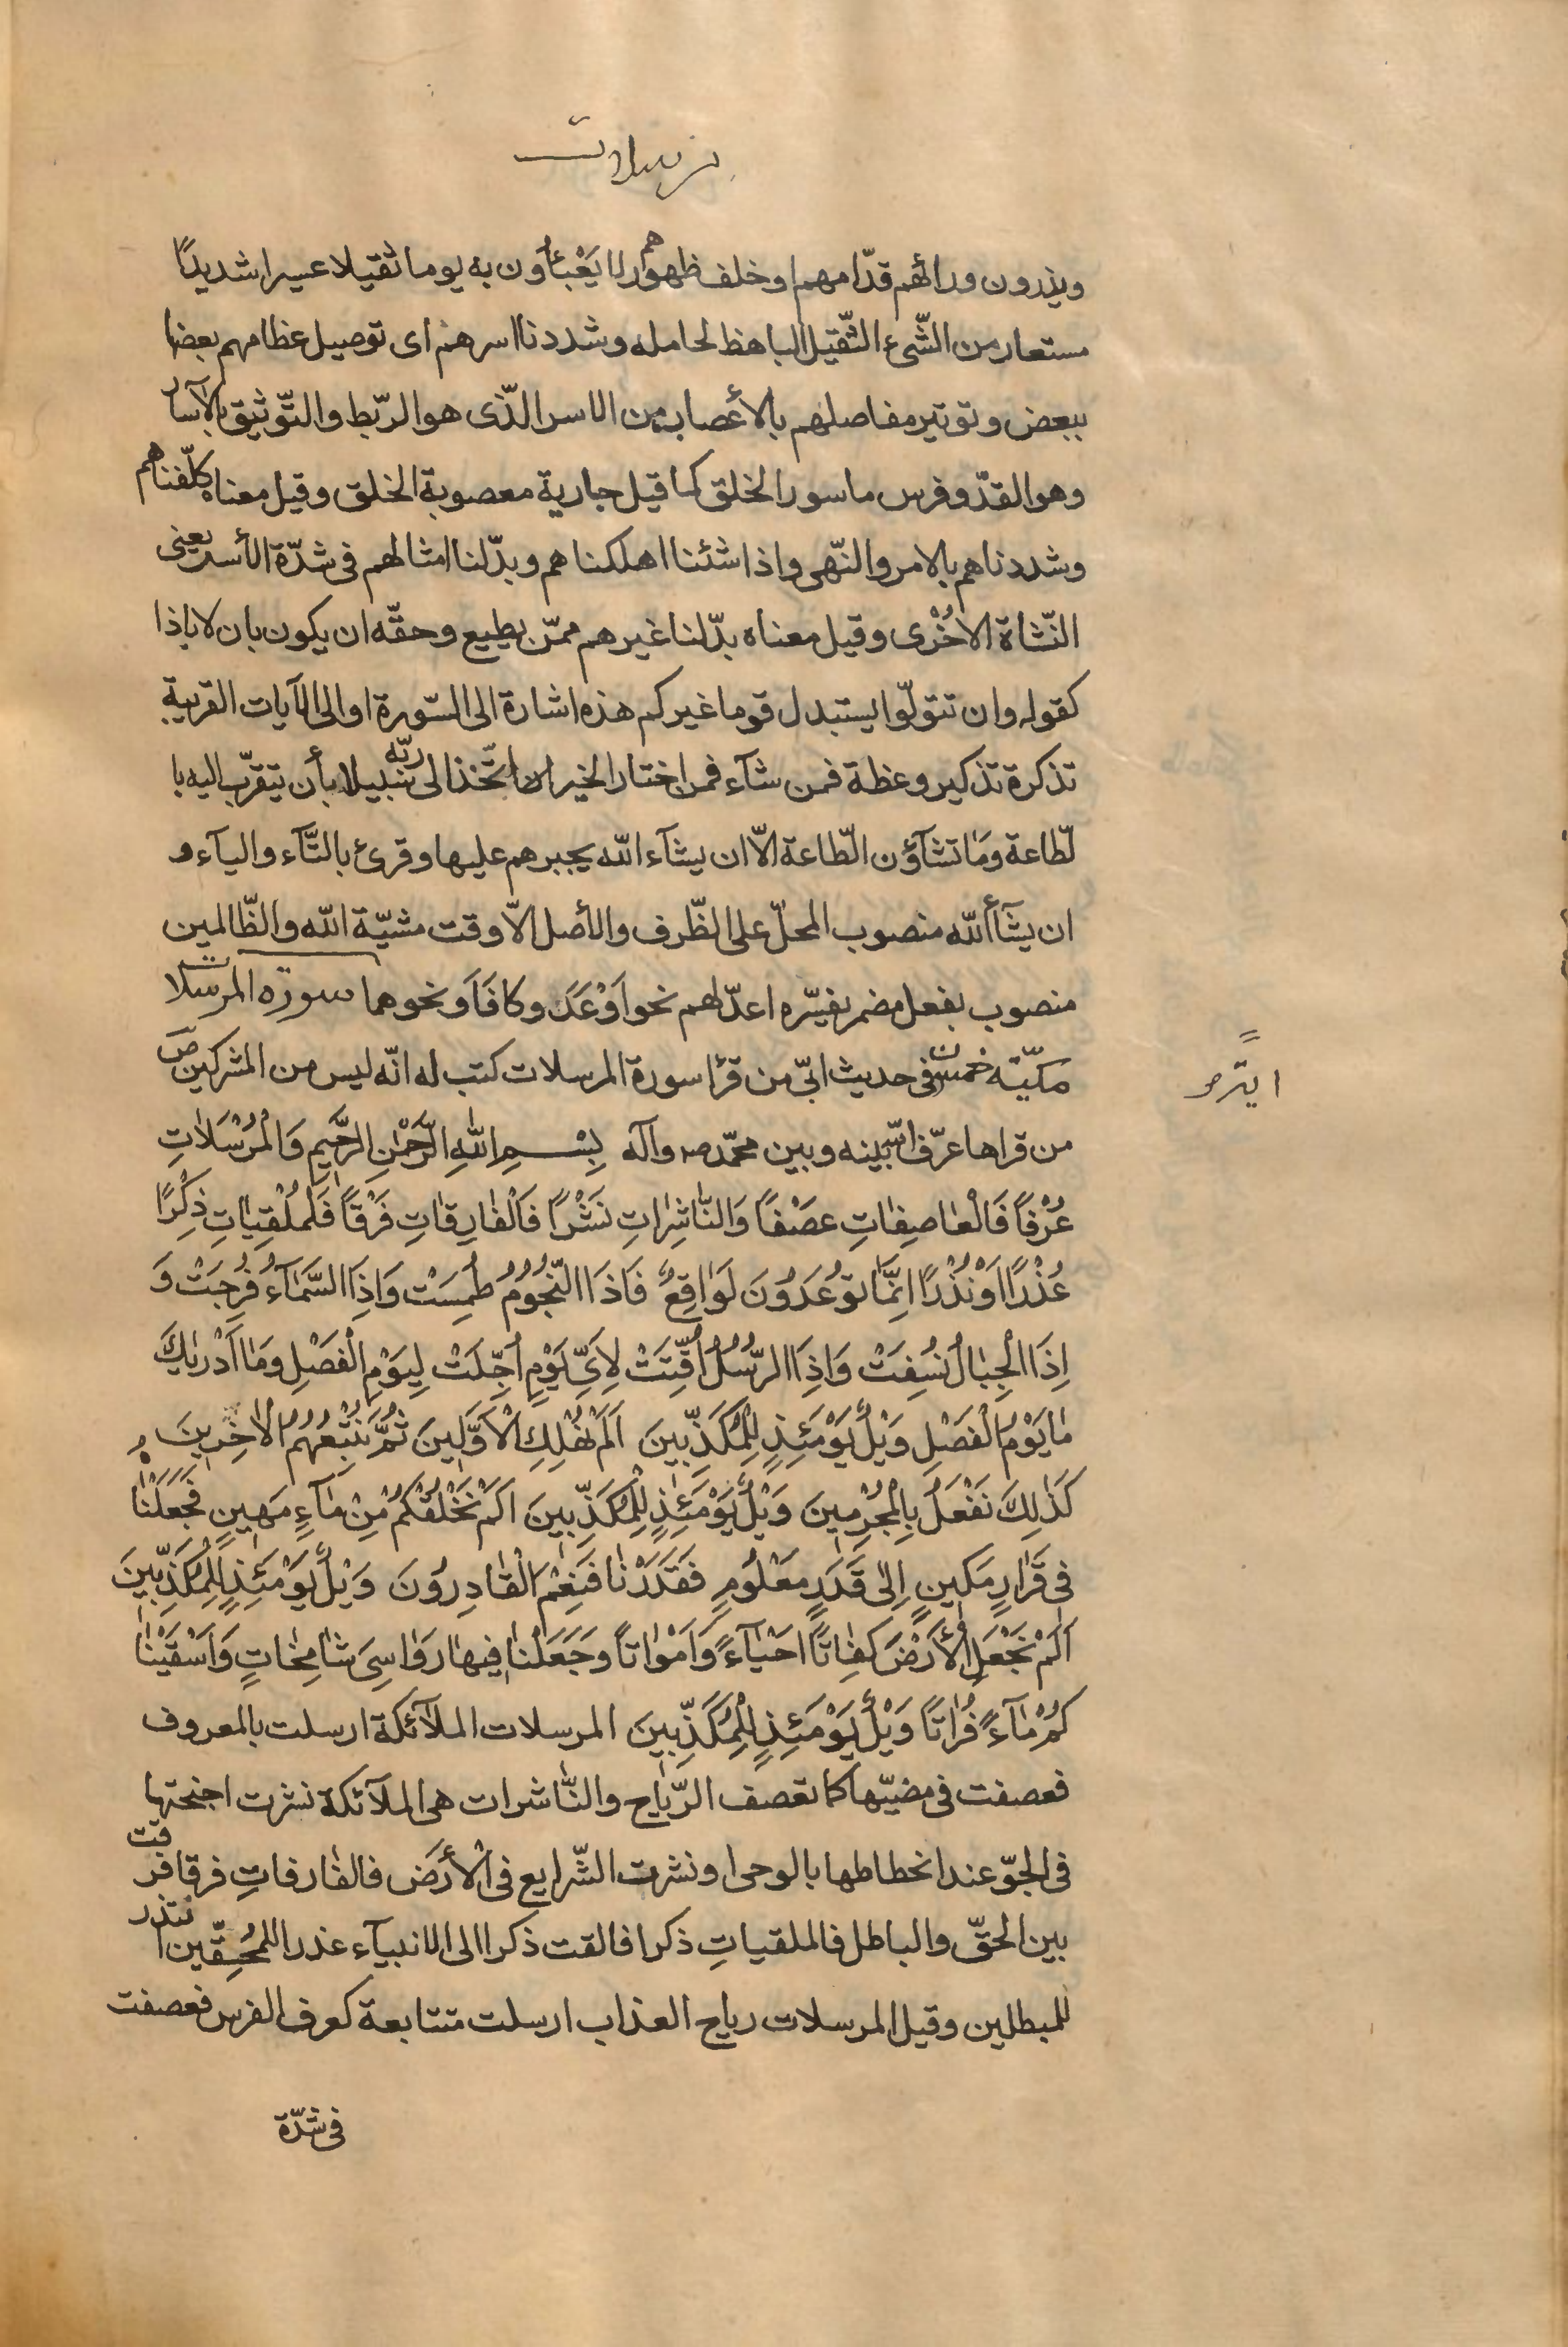 مرسلات
ويذرون ورائهم قدّامهم او خلف ظهورهم لا يَعْبَأون به يوما ثقيلا عسيرا شديدًا
مستعار من الشّىء الثّقيل الباهظ لحامله و شددنا اسرهم اى توصيل عظامهم بعضها
ببعض و توتير مفاصلهم بالأعصاب من الاسر الّذى هو الرّبط و التّوثيق بالآسار
وهو القدّ و فرس ماسور الخلق كما قيل جارية معصوبة الخلق و قيل معناه كلّفناهم
وشددناهم بالامر و النّهى و اذا شئنا اهلكناهم و بدّلنا امثالهم فى شدّة الأسر يعنى
النّشاة الاُخْرى و قيل معناه بدّلنا غيرهم ممّن يطيع و حقّه ان يكون بان لا باذا
كقوله و ان تتولّوا يستبدل قوما غيركم هذه اشارة الى السّورة او الى الآيات القريبة
تذكرة تذكير وعظة فمن شآء فمن اختار الخير اتّخذ الى ربّه سبيلا بأن يتقرّب اليه با
لطّاعة وَمَا تشآؤن الطّاعة الاّ ان يشآء الله يجبرهم عليها و قرئ بالتّآء و اليآء و
ان يشآأ الله منصوب المحلّ على الظّرف و الأصل الاّ وقت مشيّة الله و الظّالمين
منصوب بفعل مضمر يفسّره اعدّ لهم نحو اَوْعَدَ و كافَاَ و نحوهما سورة المرسلات
مكيّته خمسون فى حديث ابىّ من قرا سورة المرسلات كتب له انّه ليس من المشركين ص
ايتر
من قراها عرّف الله بينه و بين محمّد ص و آله بِسْمِ اللهِ الرَّحْمٰنِ الرَّحيمِ وَالْمُرْسَلاتِ
عُرْفاً فَالْعٰاصِفٰاتِ عصْفًا وَالنّٰاشِرٰاتِ نَشْرًا فَالْفٰارِقٰاتِ فَرْقًا فَلمُلْقِيٰاتِ ذِكْرًا
عُذْرًا اَوْ نُذْرًا اِنَّمٰا تُوعَدُونَ لَوٰاقِعٌ فَاذَا النُّجُومُ طُمِسَتْ وَاِذَا السَّمٰآءُ فُرِجَتْ وَ
اِذَا الْجِبٰالُ نُسِفَتْ وَاِذَا الرُّسُلُ اُقِّتَتْ لِاَىِّ يَوْمٍ اُجِّلَتْ لِيَوْمِ الْفَصْلِ وَمٰا اَدْريٰكَ
مٰا يَوْمُ الْفَصْلِ وَيْلٌ يَوْمَئِذٍ لِلْمُكَذِّبينَ اَلَمْ نُهْلِكِ الْاَوَّلينَ ثُمَّ نُتْبِعُهُمُ الْآخِرينَ
كَذٰلِكَ نَفْعَلُ بِالْمُجْرِمينَ وَيْلٌ يَوْمَئِذٍ لِلْمُكَذِّبينَ اَلَمْ نَخْلُقْكُمْ مِنْ مٰآءٍ مَهينٍ فَجَعَلْنٰاهُ
فى قَرٰارٍ مَكينٍ اِلٰى قَدَرٍ مَعْلُومٍ فَقَدَرْنٰا فَنِعْمَ الْقٰادِرُونَ وَيْلٌ يَوْمَئِذٍ لِلْمُكَذِّبينَ
اَلَمْ نَجْعَلِ الْأَرْضَ كِفٰاتًا اَحْيٰآءً وَاَمْوٰاتاً وَجَعَلْنٰا فيهٰا رَوٰاسِىَ شٰامِخٰاتٍ وَاَسْقَيْنٰا
كُمْ مٰآءً فُرٰاتًا وَيْلٌ يَوْمَئِذٍ لِلْمُكَذِّبينَ المرسلات الملآئكة ارسلت بالمعروف
فعصفت فى مضيّها كما تعصف الرّياح و النّاشرات هى الملآئكة نشرت اجنحتها
فى الجوّ عند انحطاطها بالوحى او نشرت الشّرايع فى الْأَرْض فالفارقاتِ فرقا ففرقت
بين الحقّ و الباطل فالملقياتِ ذكرا فالقت ذكرا الى الانبيآء عذرا للمُحِقّين او نذرا
للمبطلين و قيل المرسلات رياح العذاب ارسلت متتابعة كعرف الفرس فعصفت
فى شدّة